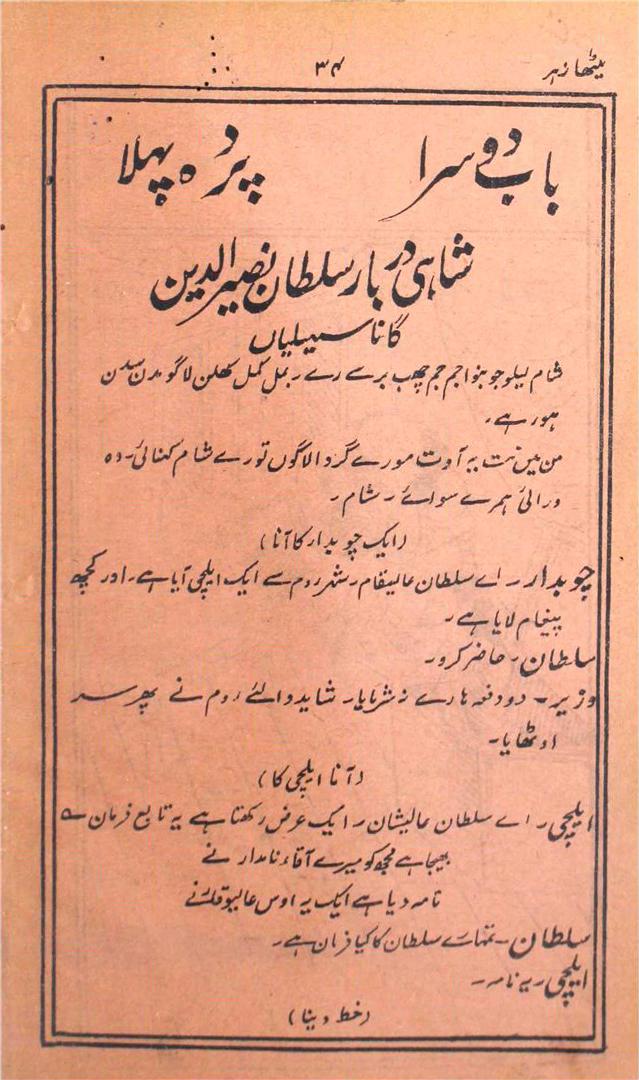 میٹھا زہر ۳۴
باب دوسرا پردہ پہلا
شاہی دربار سلطان نصیر الدین
گانا سہیلیاں
شام لیلو جو بنوا جم جم چھب برسے رے ربمل کمل کھلن لاگو بدن سدن
ہورہے۔
من میں نت یہ آوت مورے گردالاگوں تورے شام کنہائی۔ دہ
ورائی ہمرے سوائے۔ شام۔
(ایک چوبدار کا آنا)
چوبدار۔ اے سلطان عالیمقام۔ شہر روم سے ایک ایلچی آیا ہے۔ اور کچھ
پیغام لایا ہے۔
سلطان۔ حاضر کرو۔
وزیر۔ دو دفعہ ہارے نہ شرمایا۔ شاید والئے روم نے پھر سر
اوٹھایا۔
(آنا ایلچی کا)
ایلچی۔ اے سلطان عالیشان۔ ایک عرض رکھتا ہے یہ تابع فرمان ؎
بھیجا ہے مجھ کو میرے آقاء نامدار نے
نامہ دیا ہے ایک یہ اوس عالیوقار نے
سلطان۔ تمہارے سلطان کا کیا فرمان ہے۔
ایلچی۔ یہ نامہ۔
(خط دینا)